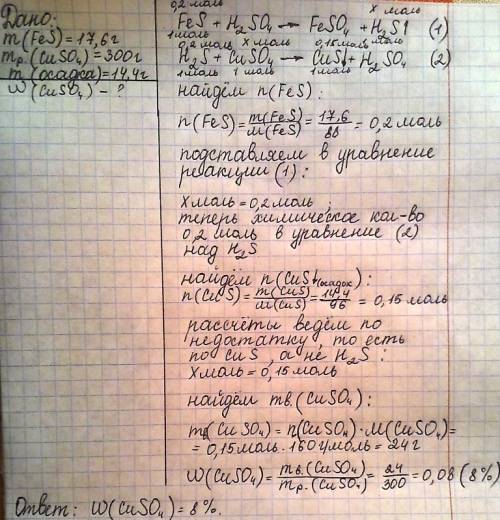 Дано:
m(FeS)=17,6г
mр.(CuSO₄)=300г
m(осадка)=14,4г
W(CuSO₄)-?
0,2 моль х моль
FeS + H₂SO₄ → FeSO₄ + H₂S↑ (1)
1моль 1моль
0,2 моль х моль 0,15моль
H₂S + CuSO₄ → CuS↓ + H₂SO₄ (2)
1моль 1 моль 1моль
найдём n(FeS):
n(FeS)=m(FeS)/M(FeS)=17,6/88=0,2 моль
подставляем в уравнение
реакции (1):
х моль=0,2 моль;
теперь химическое кол-во
0,2 моль в уравнение (2)
над H₂S
найдём n(CuS↓(осадок)):
n(CuS)=m(CuS)/M(CuS)=14,4/96=0,15 моль
рассчёты ведём по
недостатку, то есть
по CuS, а не H₂S:
х моль=0,15 моль
найдём mв.(CuSO₄):
m(CuSO₄)=n(CuSO₄)·M(CuSO₄)=
=0,15 моль·160г/моль=24г
W(CuSO₄)=mв.(CuSO₄)/mр.(CuSO₄)=24/300=0,08(8%)
Ответ: W(CuSO₄)=8%.